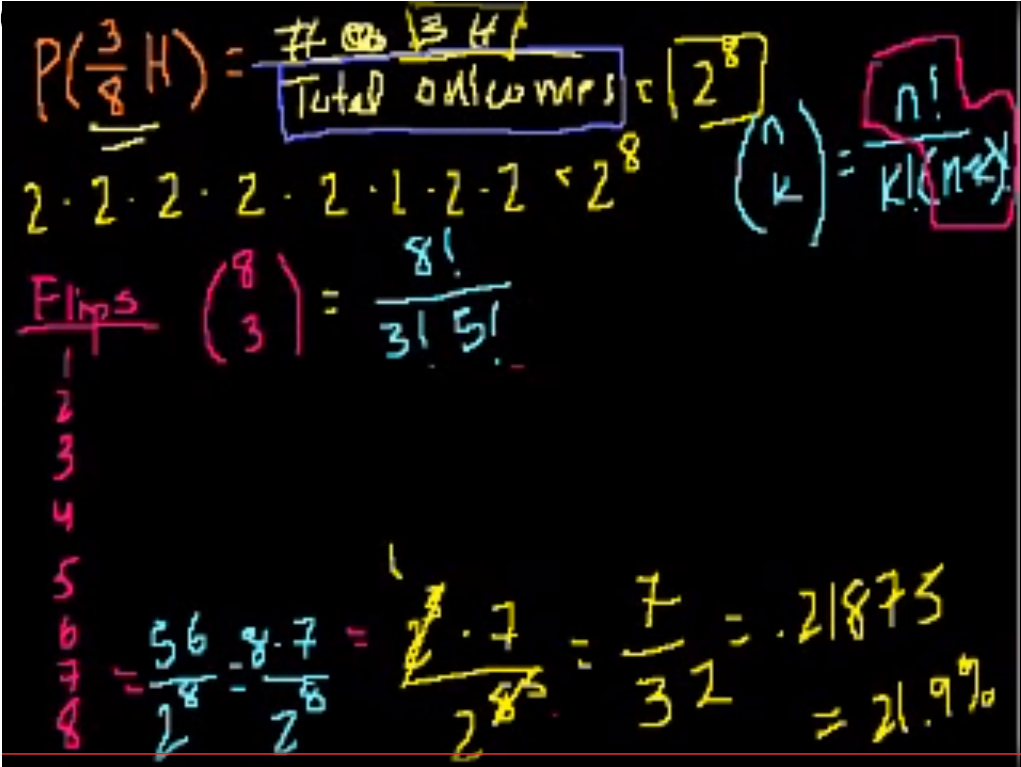 P(3/8 H) = # 3 H / Total outcomes = 2^8
(n k) = n! / k!(n-k)!
2 · 2 · 2 · 2 · 2 · 2 · 2 · 2 = 2^8
Flips
(8 3) = 8! / 3! 5!
1
2
3
4
5
6
7
8
= 56 / 2^8 = 8·7 / 2^8 = 2^3 · 7 / 2^8 5 = 7 / 32 = .21875
= 21.9%